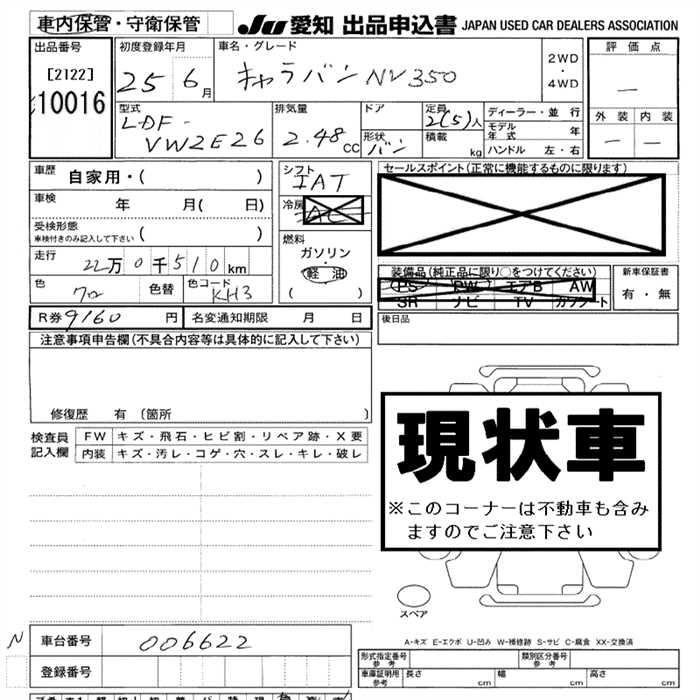 車内保管・守衛保管 JU 愛知 出品申込書 JAPAN USED CAR DEALERS ASSOCIATION
出品番号
[2122]
10016
初度登録年月
25 6月
車名・グレード
キャラバン NV350
2WD
・
4WD
評価点
—
外装 内装
— —
型式
LDF-
VW2E26
排気量
2.48cc
ドア
形状
バン
定員
2(5)人
積載
kg
ディーラー・並行
モデル年式 年
ハンドル 左・右
車歴 自家用・( )
車検 年 月( 日)
受検形態
車検付きのみ記入して下さい ( )
走行 22万0千510km
色 クロ 色替 色コード KH3
シフト
IAT
冷房
AC
燃料
ガソリン
・
軽油
( )
セールスポイント(正常に機能するものに限ります)
装備品(純正品に限り○をつけてください)
PS PW エアB AW
SR ナビ TV カワシート
新車保証書
有・無
後日品
R券 9160 円 名変通知期限 月 日
注意事項申告欄(不具合内容等は具体的に記入して下さい)
修復歴 有 〔箇所 〕
検査員
記入欄
FW キズ・飛石・ヒビ割・リペア跡・X要
内装 キズ・汚レ・コゲ・穴・スレ・キレ・破レ
現状車
※このコーナーは不動車も含み
ますのでご注意下さい
スペア
A-キズ E-エクボ U-凹み W-補修跡 S-サビ C-腐食 XX-交換済
N 車台番号 006622
登録番号
形式指定番号
参考
類別区分番号
参考
車庫証明用
参考
長さ cm 幅 cm 高さ cm